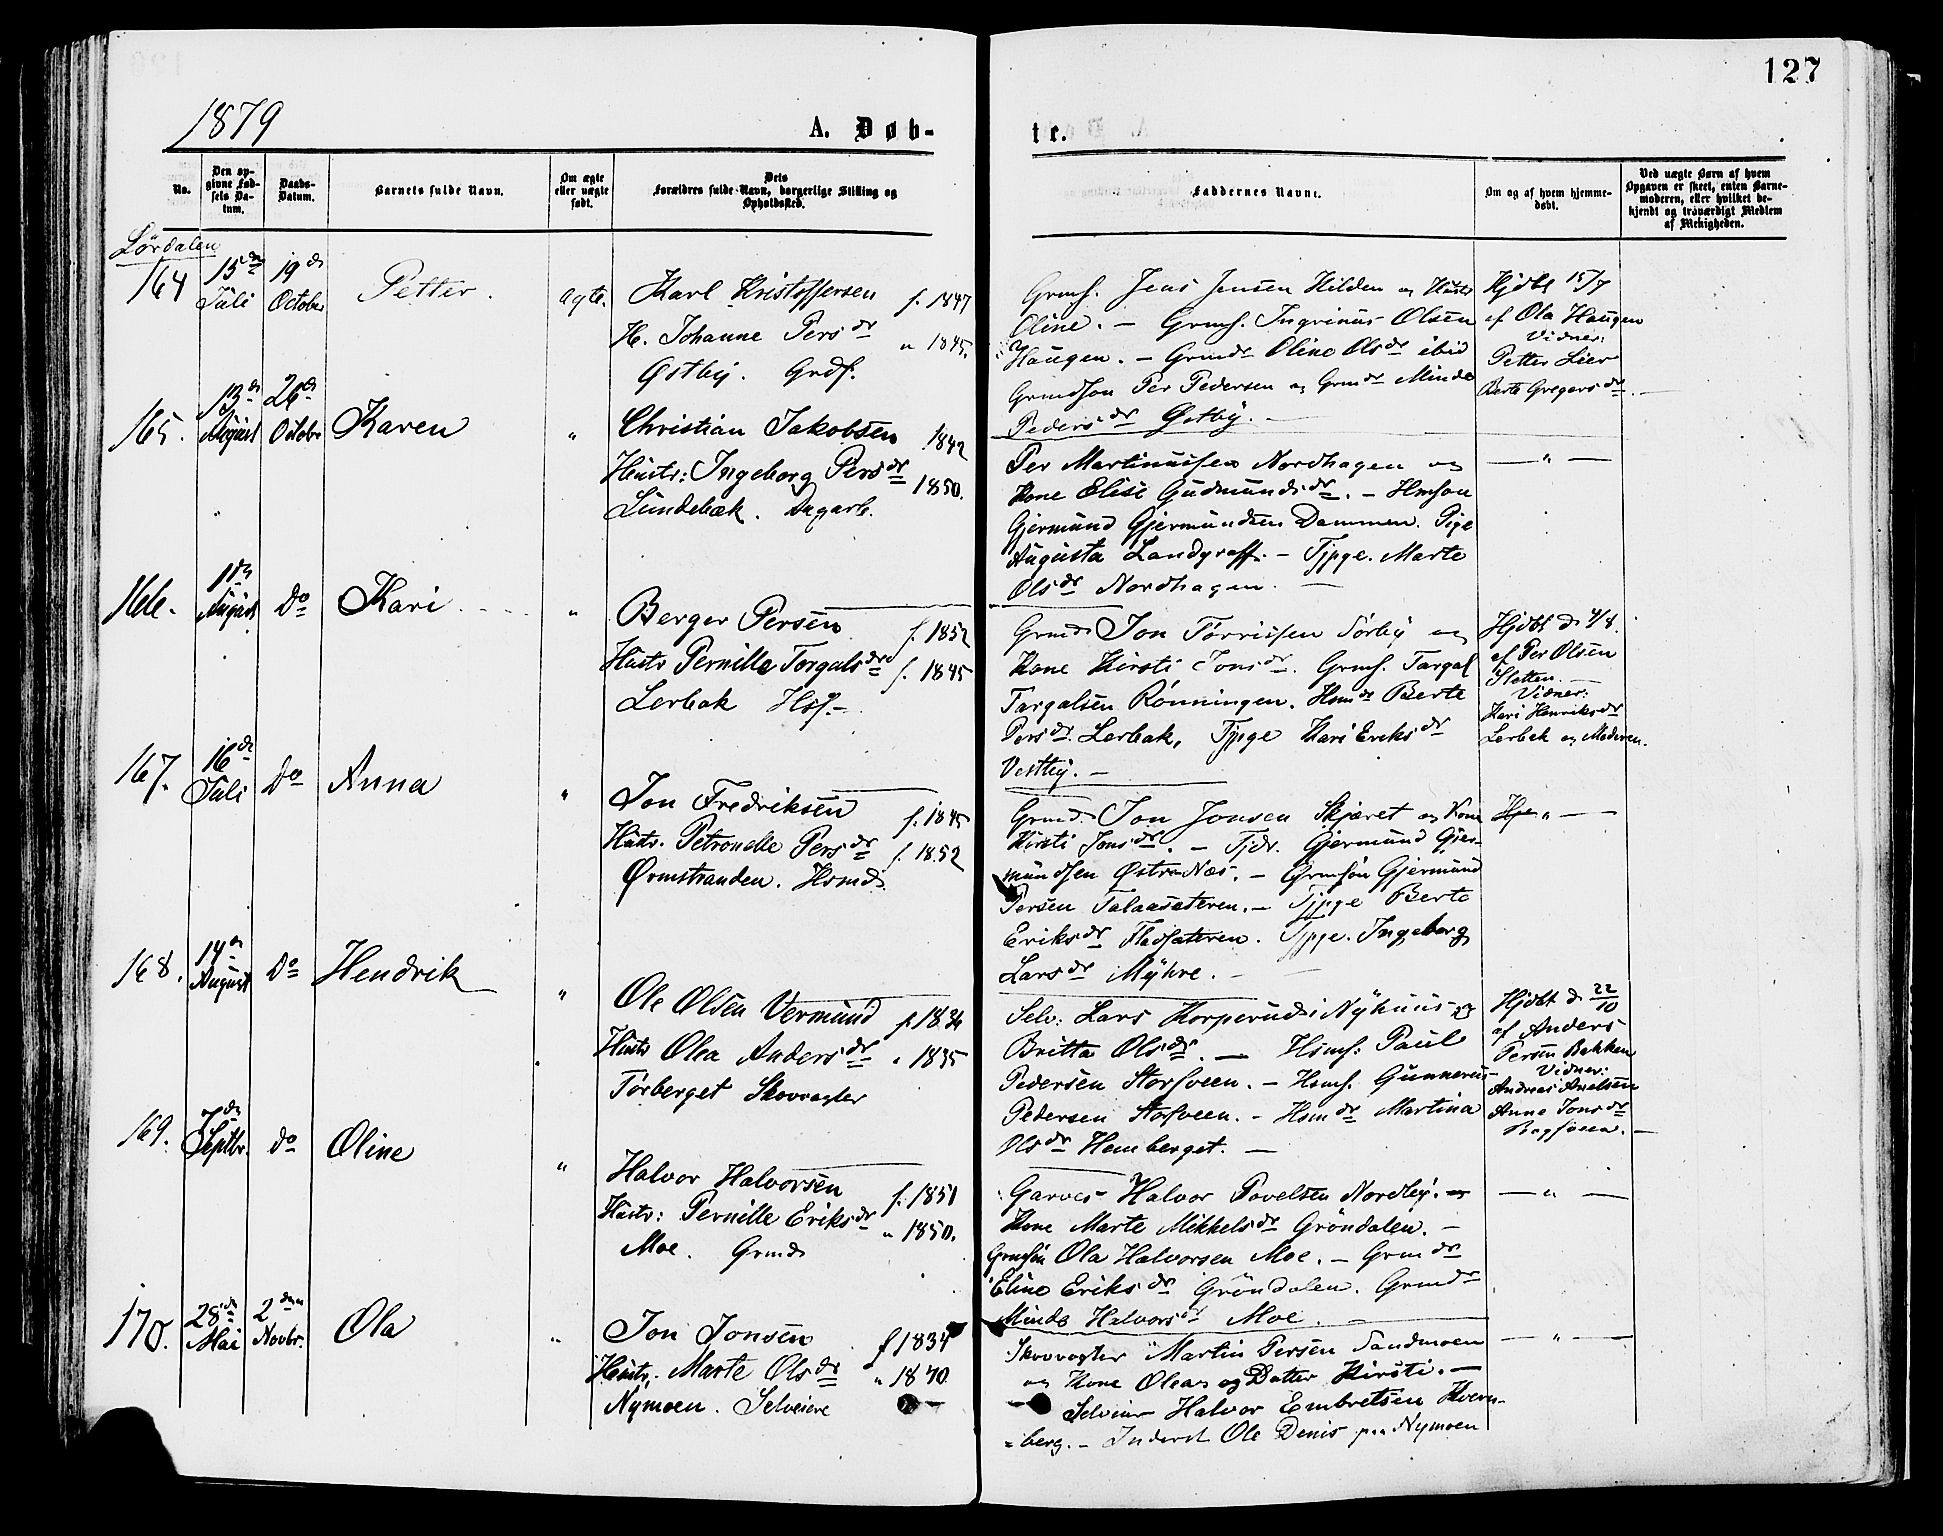 127
1879
A. Døb-
te.
No.
Den op-
givne Fød-
sels Da-
tum.
Daabs-
Datum.
Barnets fulde Navn.
Om ægte
eller uægte
født.
Dets
Forældres fulde Navn, borgerlige Stilling og
Opholdssted.
Faddernes Navne.
Om og af hvem hjemme-
døbt.
Ved uægte Børn af hvem
Opgaven er skeet, enten Barne-
moderen, eller hvilket be-
kjendt og troværdigt Medlem
af Menigheden.
Lørdalen
164
15de
Juli
19de
October
Petter.
ægte.
Karl Kristoffersen f. 1847
H. Johanne Persdr " 1845.
Østby. Grdf.
Grmf. Jens Jensen Hilden og Hustr
Oline. — Grmf. Ingrinus Olsen
Haugen. — Grmdr Oline Olsdr ibid
Grmdson Per Pedersen og Grmdr Minda
Pedersdr Østby. —
Hjdbt 15/7
af Ola Haugen
Vidner:
Petter Lier
Berte Gregersdr. —
165.
13de
August
26de
Octobr
Karen
"
Christian Jakobsen 1842
Hustr: Ingeborg Persdr 1850.
Lundebæk. Dagarb.
Per Martinussen Nordhagen og
Kone Elise Gudmundsdr. — Hmson
Gjermund Gjermundsen Dammen. Pige
Augusta Landgraff. — Tjpge. Marte
Olsdr Nordhagen. —
— " —
166.
1ste
August
Do
Kari.
"
Berger Persen f. 1852
Hustr Pernille Torgalsdr f. 1845
Lerbak Hsf. —
Grmd Jon Torrissen Sørby og
Kone Kirsti Jonsdr. Grmf. Targal
Targalsen Rønningen. Hsmdr Berte
Persdr. Lerbak, Tjpge Kari Eriksdr
Vestby. —
Hjdbt d 4/8.
af Per Olsen
Sletten. —
Vidner:
Kari Henriksdr
Lerbek og Moderen.
167.
16de
Juli
Do
Anna
"
Jon Fredriksen f. 1845
Hustr. Petronelle Persdr f. 1852
Ørmstranden. Hsmd.
Grmd. Jon Jonsen Skjæret og Kone
Kirsti Jonsdr. — Tjdr. Gjermund Gjer-
mundsen Østre Næs. — Grmsøn Gjermund
Persen Talaasæteren. — Tjpge Berte
Eriksdr Fladsæteren. Tjpge. Ingeborg
Larsdr Myhre. —
" —
168.
14de
August
Do
Hendrik
"
Ole Olsen Vermund f. 1836
Hustr Olea Andersdr " 1835
Tørberget Skovvogter
Selv: Lars Korperud i Nyhuus og
Britta Olsdr. — Hsmf: Paul
Pedersen Storsveen. — Hsmf. Gunnerus
Pedersen Storsveen. — Hsmdr Martina
Olsdr Hemberget. —
Hjdbt d 22/10
af Anders
Persen Bakken
Vidner:
Andreas Axelsen
Anne Jonsdr
169.
7de
Septbr.
do
Oline
"
Halvor Halvorsen f. 1851
Hustr: Pernille Eriksdr " 1850.
Moe. Grmd
Garver Halvor Povelsen Nordby. og
Kone Marte Mikkelsdr Grøndalen. —
Grmsøn Ola Halvorsen Moe. — Grmdr
Eline Eriksdr Grøndalen. Grmdr
Minda Halvorsdr Moe. —
— " —
170.
28de
Mai
2den
Novbr.
Ola
"
Jon Jonsen f 1834
Hustr. Marte Olsdr " 1840.
Nymoen. Selveiere
Skovvogter Martin Persen Sandmoen
og Kone Olea og Datter Kirsti. —
Selveier Halvor Embretsen Kvern-
berg. — Inderst Ole Denis paa Nymoen
— " —